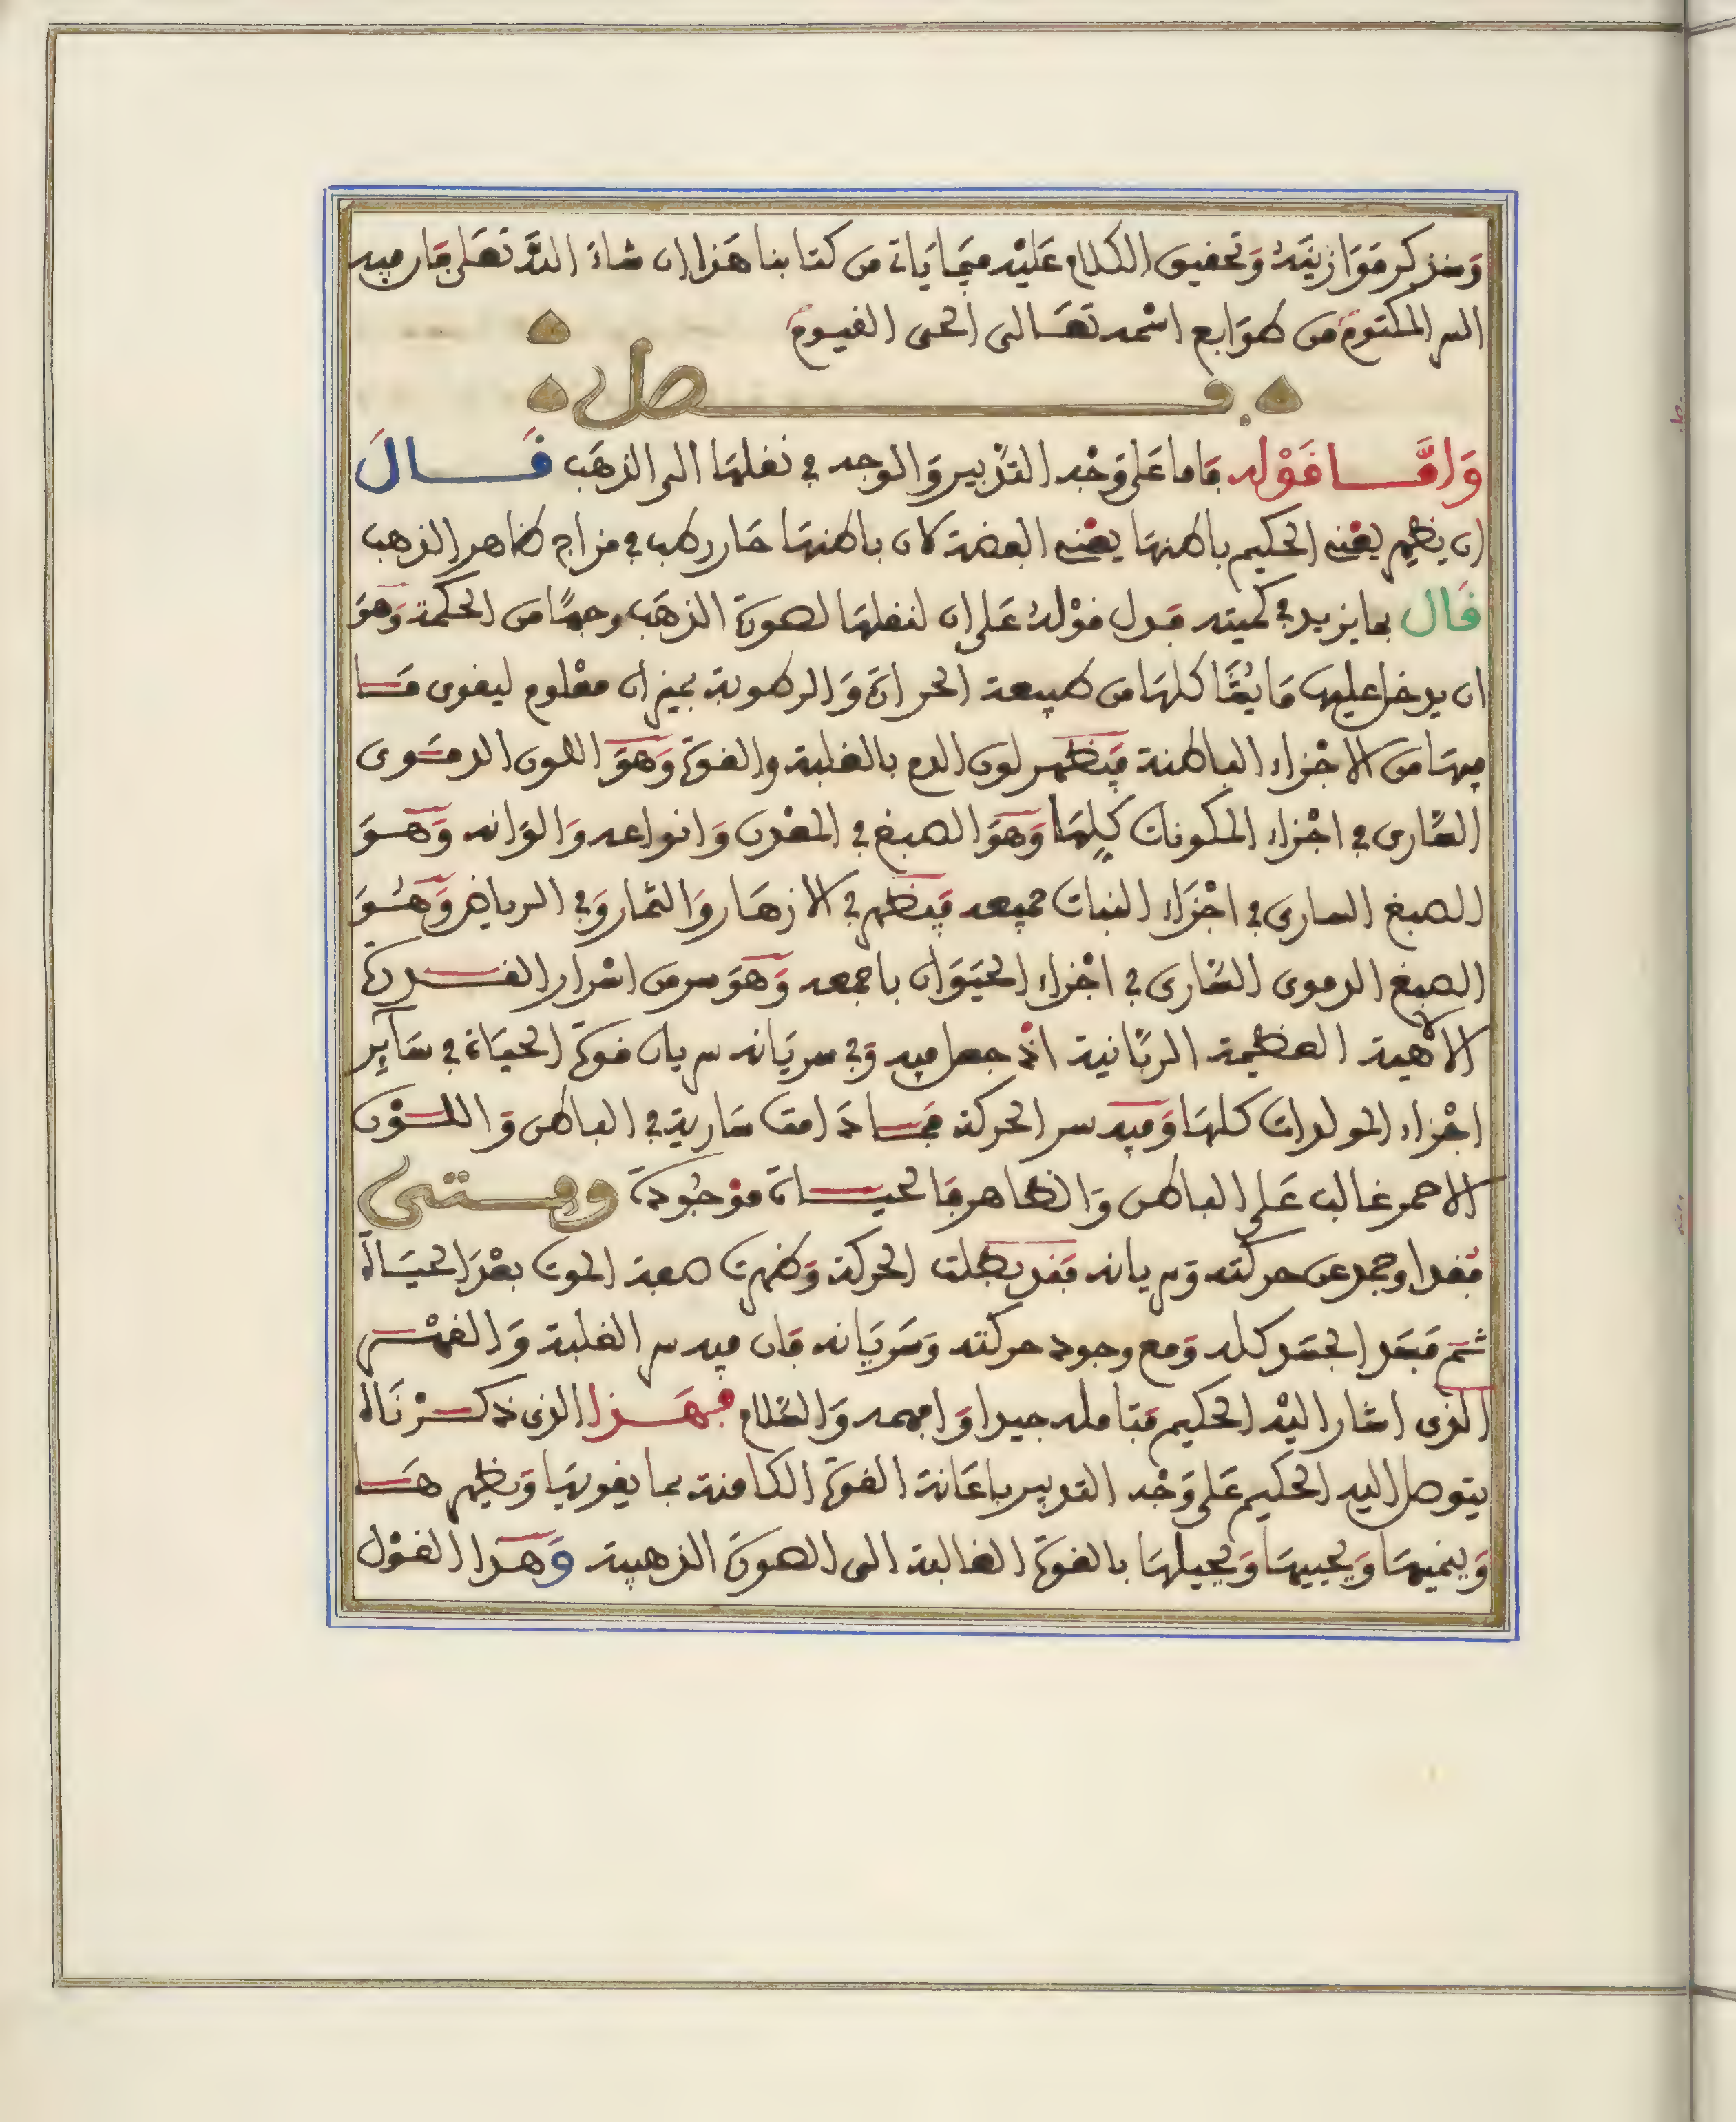 وسنذكر موازينه وتحقيق الكلام عليه فيما ياتي من كتابنا هذا ان شاء الله تعلى فان فيه
السر المكتوم من طوابع اسمه تعالى الحى القيوم
فصل
واما قوله فاما على وجه التدبير والوجه في نقلها الى الذهب قال
ان يظهر يعني الحكيم باطنها يعني الفضة لان باطنها حار رطب في مزاج ظاهر الذهب
قال بما يزيد في كميته فدل قوله على ان لنقلها لصورة الذهب وجها من الحكمة وهو
ان يدخل عليها ما يشاكلها من طبيعة الحرارة والرطوبة بميزان معلوم ليقوى ما
فيها من الاجزاء الباطنة فيظهر لون الدم بالغلبة والقوة وهو اللون الدموى
السارى في اجزاء المكونات كلها وهو الصبغ في المعدن وانواعه والوانه وهو
الصبغ السارى في اجزاء النبات جميعه فيظهر في الازهار والثمار وفي الرياض وهو
الصبغ الدموى السارى في اجزاء الحيوان باجمعه وهو سر من اسرار القدرة
الالاهية العظيمة الربانية اذ جعل فيه وفي سريانه سريان قوة الحياة في سآير
اجزاء المولدات كلها وفيه سر الحركة فما دامت سارية في الباطن واللون
الاحمر غالب على الباطن والظاهر فالحياة موجودة ومتى
فقد او جمد عن حركته وسريانه فقد بطلت الحركة وظهرت صفة الموت بعد الحياة
ثم فسد الجسد كله ومع وجود حركته وسريانه فان فيه سر الغلبة والقهر
الذى اشار اليه الحكيم فتامله جيدا وافهمه والسلام فهذا الذى ذكرناه
يتوصل اليه الحكيم على وجه التدبير باعانة القوة الكامنة بما يقويها ويظهرها
وينميها ويحييها ويحيلها بالقوة الغالبة الى الصورة الذهبية وهذا القول